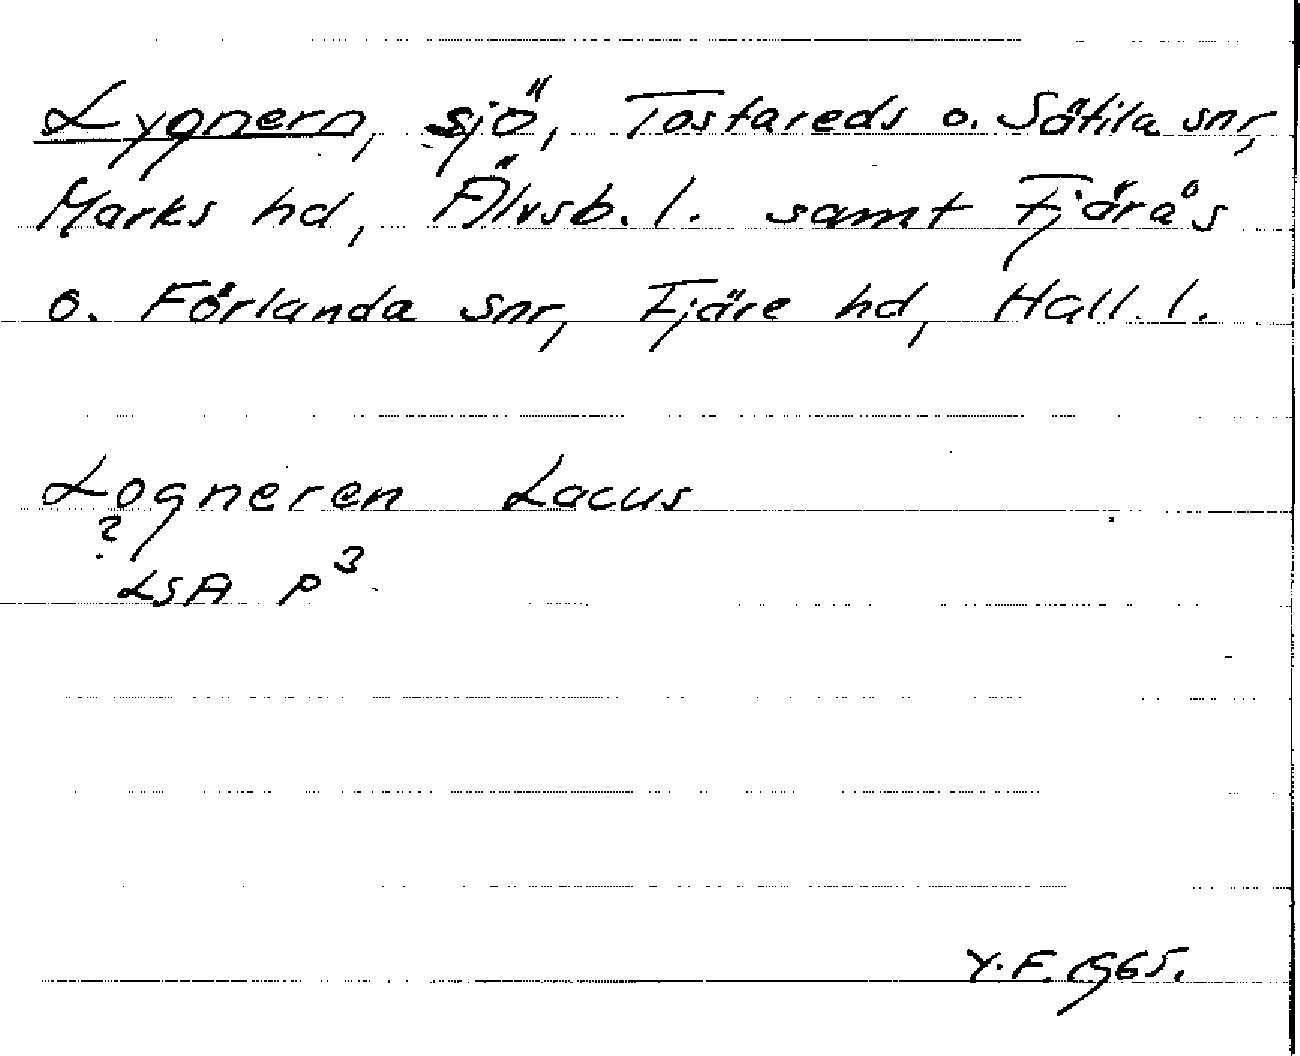 Lygnern, sjö, Tostareds o. Sätila snr,
Marks hd, Älvsb. l. samt Fjärås
o. Förlanda snr, Fjäre hd, Hall. l.
Logneren Lacus
?
LSA P³
Y.F. 1965.